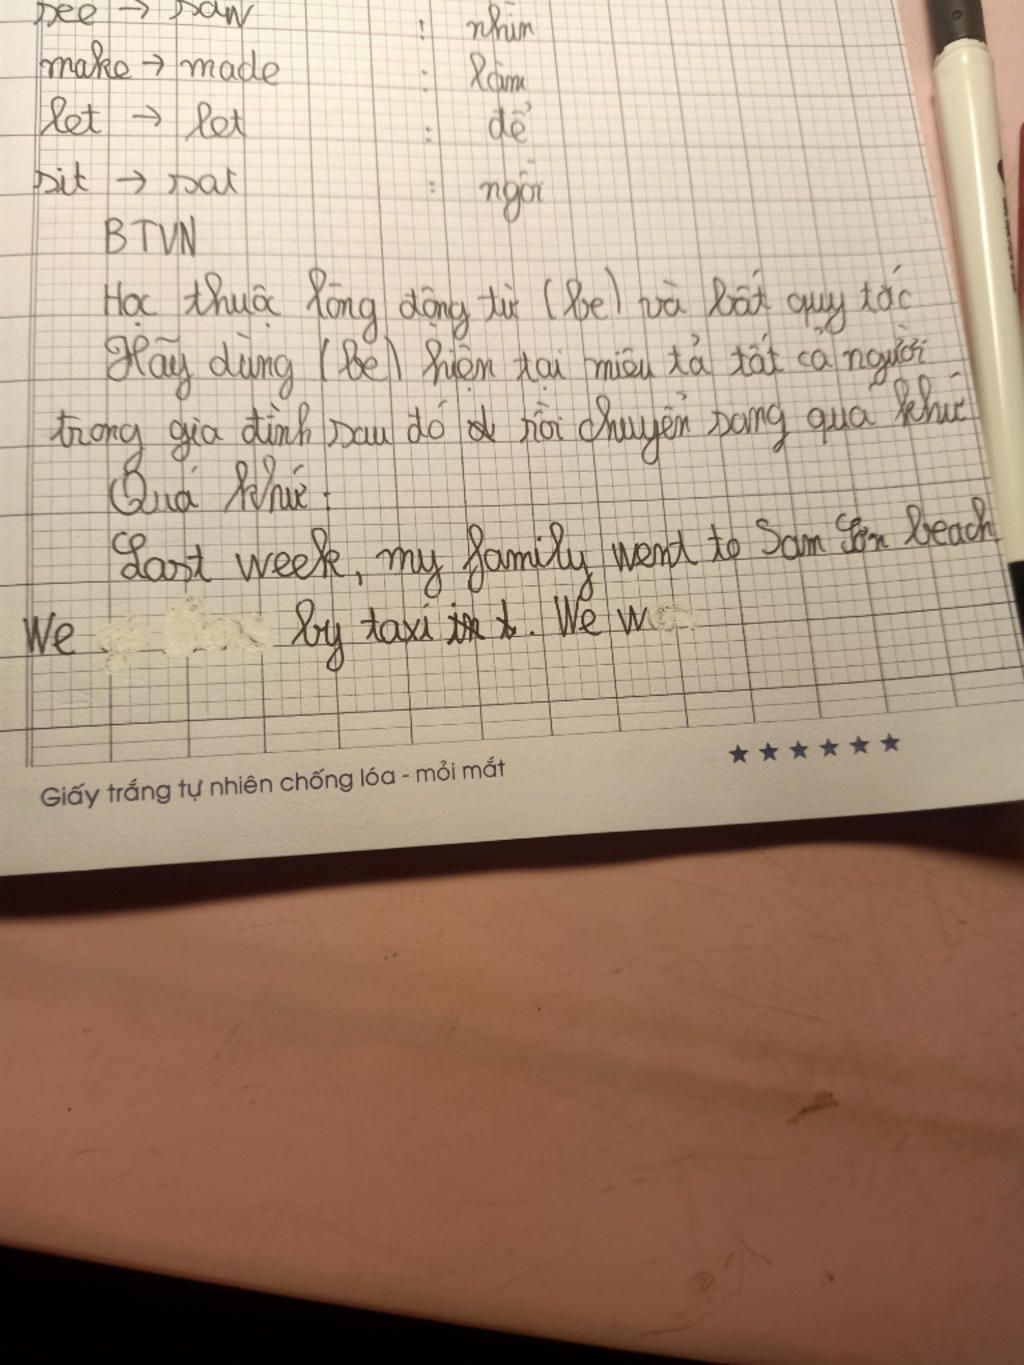 see → saw : nhìn
make → made : làm
let → let : để
sit → sat : ngồi
BTVN
Học thuộc lòng động từ (be) và bất quy tắc
Hãy dùng (be) hiện tại miêu tả tất cả người
trong gia đình sau đó rồi chuyển sang quá khứ
Quá khứ:
Last week, my family went to Sầm Sơn beach
We by taxi. We w
Giấy trắng tự nhiên chống lóa - mỏi mắt